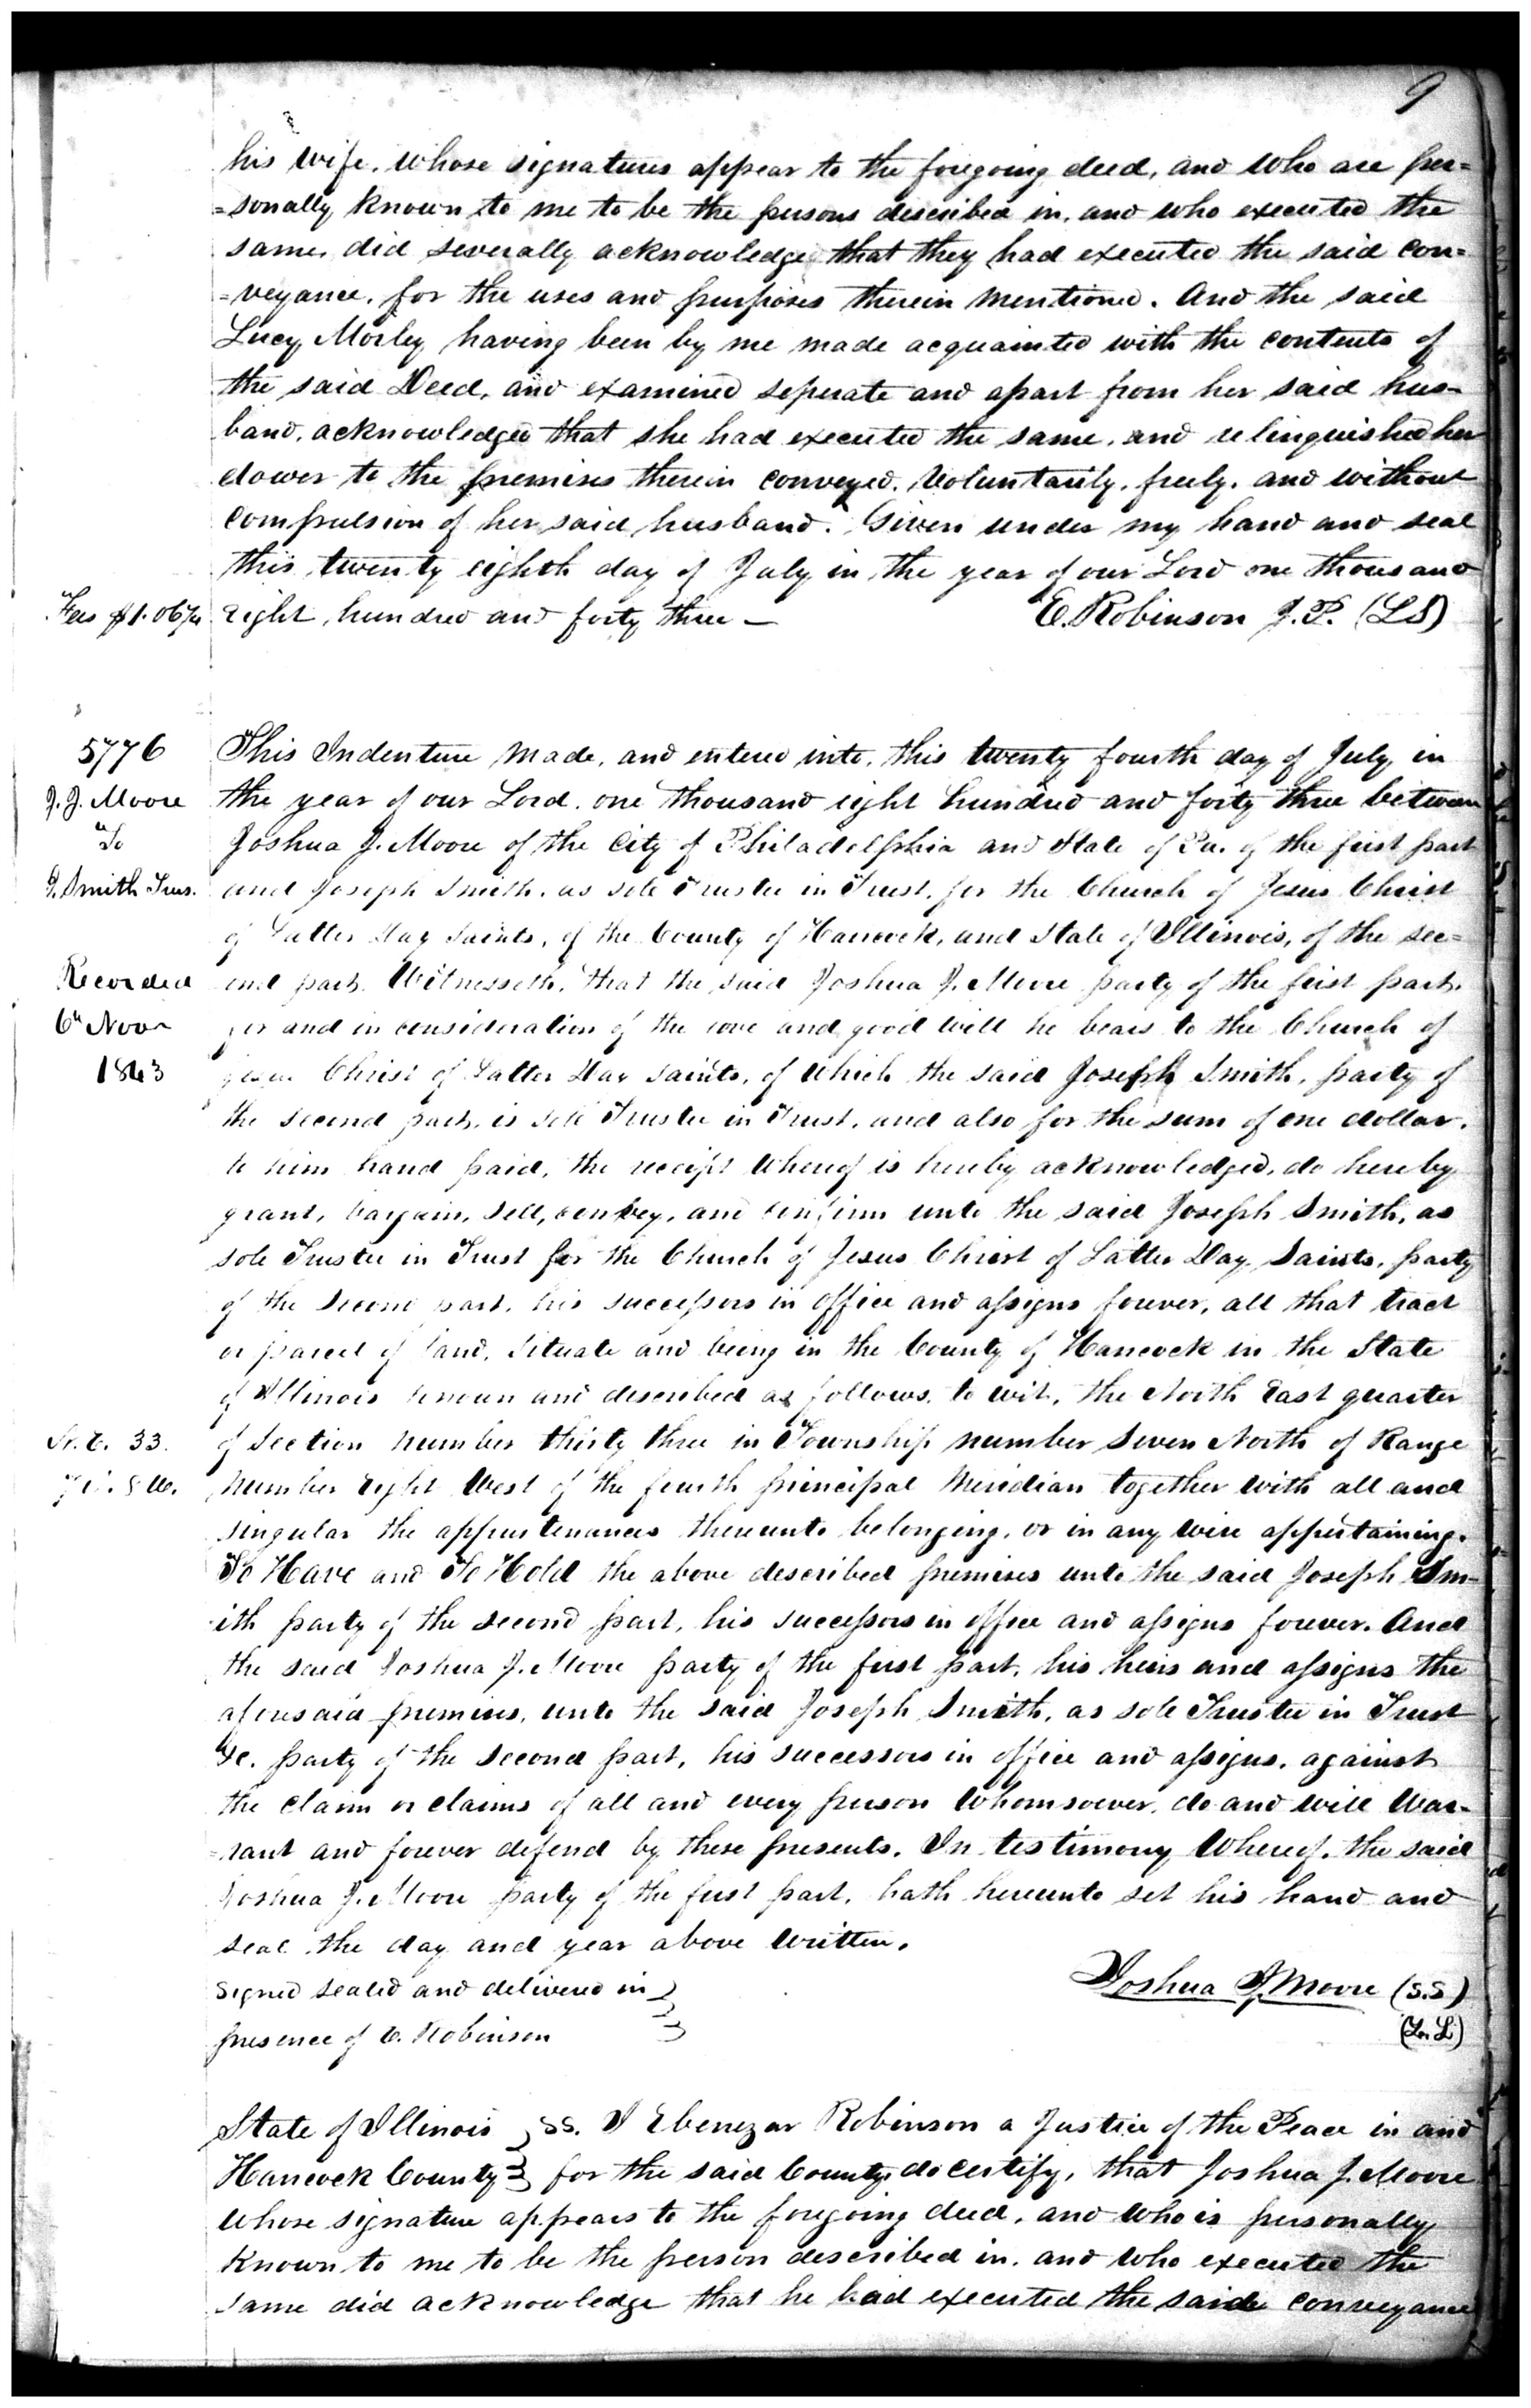 9
his wife, whose signatures appear to the foregoing deed, and who are per=
=sonally known to me to be the persons described in, and who executed the
same, did severally acknowledge that they had executed the said con=
=veyance, for the uses and purposes therein mentioned. And the said
Lucy Morley having been by me made acquainted with the contents of
the said Deed, and examined seperate and apart from her said hus-
band, acknowledged that she had executed the same, and relinquished her
dower to the premises therein conveyed, voluntarily, freely, and without
compulsion of her said husband. Given under my hand and seal
this twenty eighth day of July in the year of our Lord one thousand
Fees $1.06¼ eight hundred and forty three — E. Robinson J.P. (LS)
5776 This Indenture made, and entered into, this twenty fourth day of July in
J. J. Moore the year of our Lord, one thousand eight hundred and forty three between
To Joshua J. Moore of the City of Philadelphia and State of Pa. of the first part
J. Smith Trus. and Joseph Smith, as sole Trustee in Trust, for the Church of Jesus Christ
of Latter Day Saints, of the County of Hancock, and State of Illinois, of the sec=
Recorded ond part. Witnesseth, that the said Joshua J. Moore party of the first part,
6th Novr for and in consideration of the love and good will he bears to the Church of
1843 Jesus Christ of Latter Day Saints, of which the said Joseph Smith, party of
the second part, is sole Trustee in Trust, and also for the sum of one dollar,
to him hand paid, the receipt whereof is hereby acknowledged, do hereby
grant, bargain, sell, convey, and confirm unto the said Joseph Smith, as
sole Trustee in Trust for the Church of Jesus Christ of Latter Day Saints, party
of the second part, his successors in office and assigns forever, all that tract
or parcel of land, situate and being in the County of Hancock in the State
of Illinois known and described as follows, to wit, the North East quarter
33. of Section number thirty three in Township number Seven North of Range
8 W. number eight West of the fourth principal Meridian together with all and
singular the appurtenances thereunto belonging, or in any wise appertaining.
To Have and To Hold the above described premises unto the said Joseph Sm-
ith party of the second part, his successors in office and assigns forever. And
the said Joshua J. Moore party of the first part, his heirs and assigns the
aforesaid premises, unto the said Joseph Smith, as sole Trustee in Trust
&c. party of the second part, his successors in office and assigns, against
the claim or claims of all and every person whomsoever, do and will War-
=rant and forever defend by these presents. In testimony whereof, the said
Joshua J. Moore party of the first part, hath hereunto set his hand and
seal the day and year above written.
Signed sealed and delivered in Joshua J. Moore (S.S)
presence of E. Robinson (L. L)
State of Illinois } SS. I Ebenezar Robinson a Justice of the Peace in and
Hancock County } for the said County do certify, that Joshua J. Moore
whose signature appears to the foregoing deed, and who is personally
known to me to be the person described in, and who executed the
same did acknowledge that he had executed the said conveyance